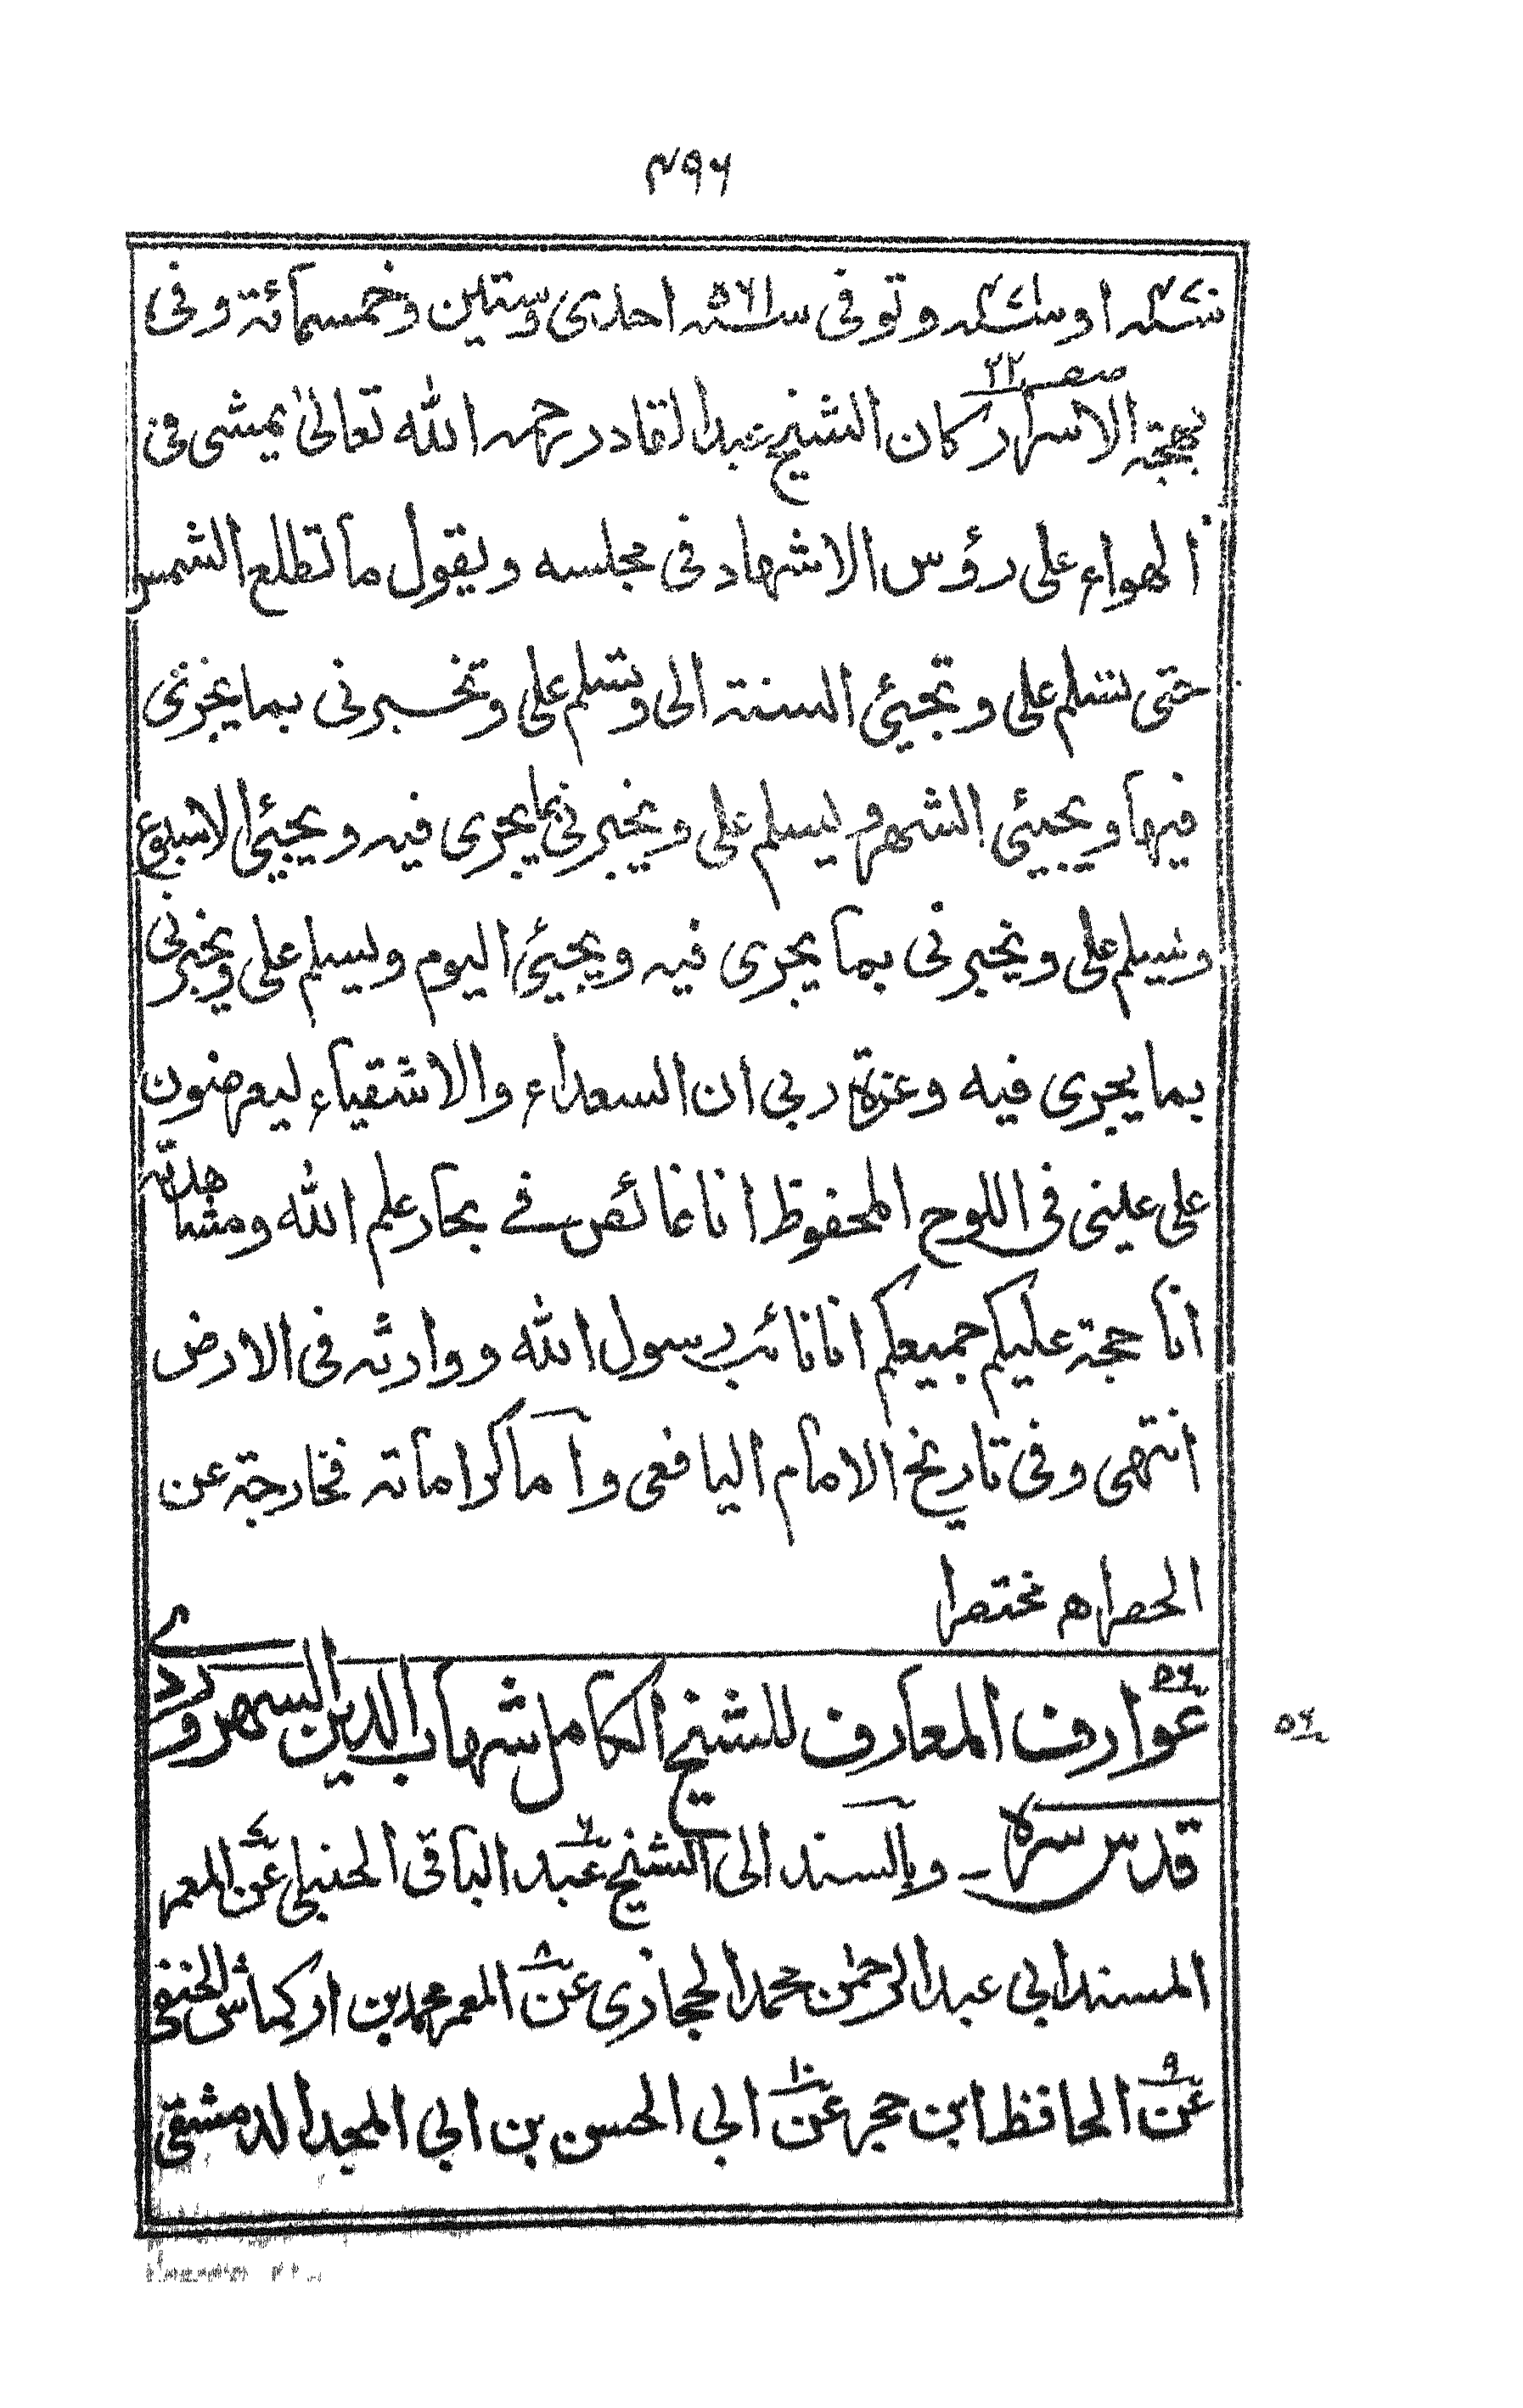 ٤٩٦
سنة ٤٧٠ او سنة ٤٧١ وتوفى سنة ٥٦١ احدى وستين وخمسمائة وفى
بهجة الاسرار صفر ٢٢ كان الشيخ عبد القادر رحمه الله تعالىٰ يمشى فى
الهواء على رؤس الاشهاد فى مجلسه ويقول ما تطلع الشمس
حتى تسلم على وتجيئ السنة الى وتسلم على وتخبرنى بما يجرى
فيها ويجيئى الشهر ويسلم على ويخبرنى بما يجرى فيه ويجيئ الاسبوع
ويسلم على ويخبرنى بما يجرى فيه ويجيئ اليوم ويسلم على ويخبرنى
بما يجرى فيه وعزة ربى ان السعداء والاشقياء ليعرضون
على عينى فى اللوح المحفوظ انا غائص فے بحار علم الله ومشاهدته
انا حجة عليكم جميعكم انا نائب رسول الله ووارثه فى الارض
انتهى وفى تاريخ الامام اليافعى وآما كراماته فخارجة عن
الحصراه مختصرا
٥٦ عوارف المعارف للشيخ الكامل شهاب الدين السهروردے
٥٦
قدس سره ـ وبالسند الى الشيخ ٦ عبد الباقى الحنبلى عن ٧ المعمر
المسند ابى عبد الرحمٰن محمد الحجازى عن ٨ المعمر محمد بن اركماش الحنفى
عن ٩ الحافظ ابن حجر عن ١٠ ابى الحسن بن ابى المجد الدمشقى